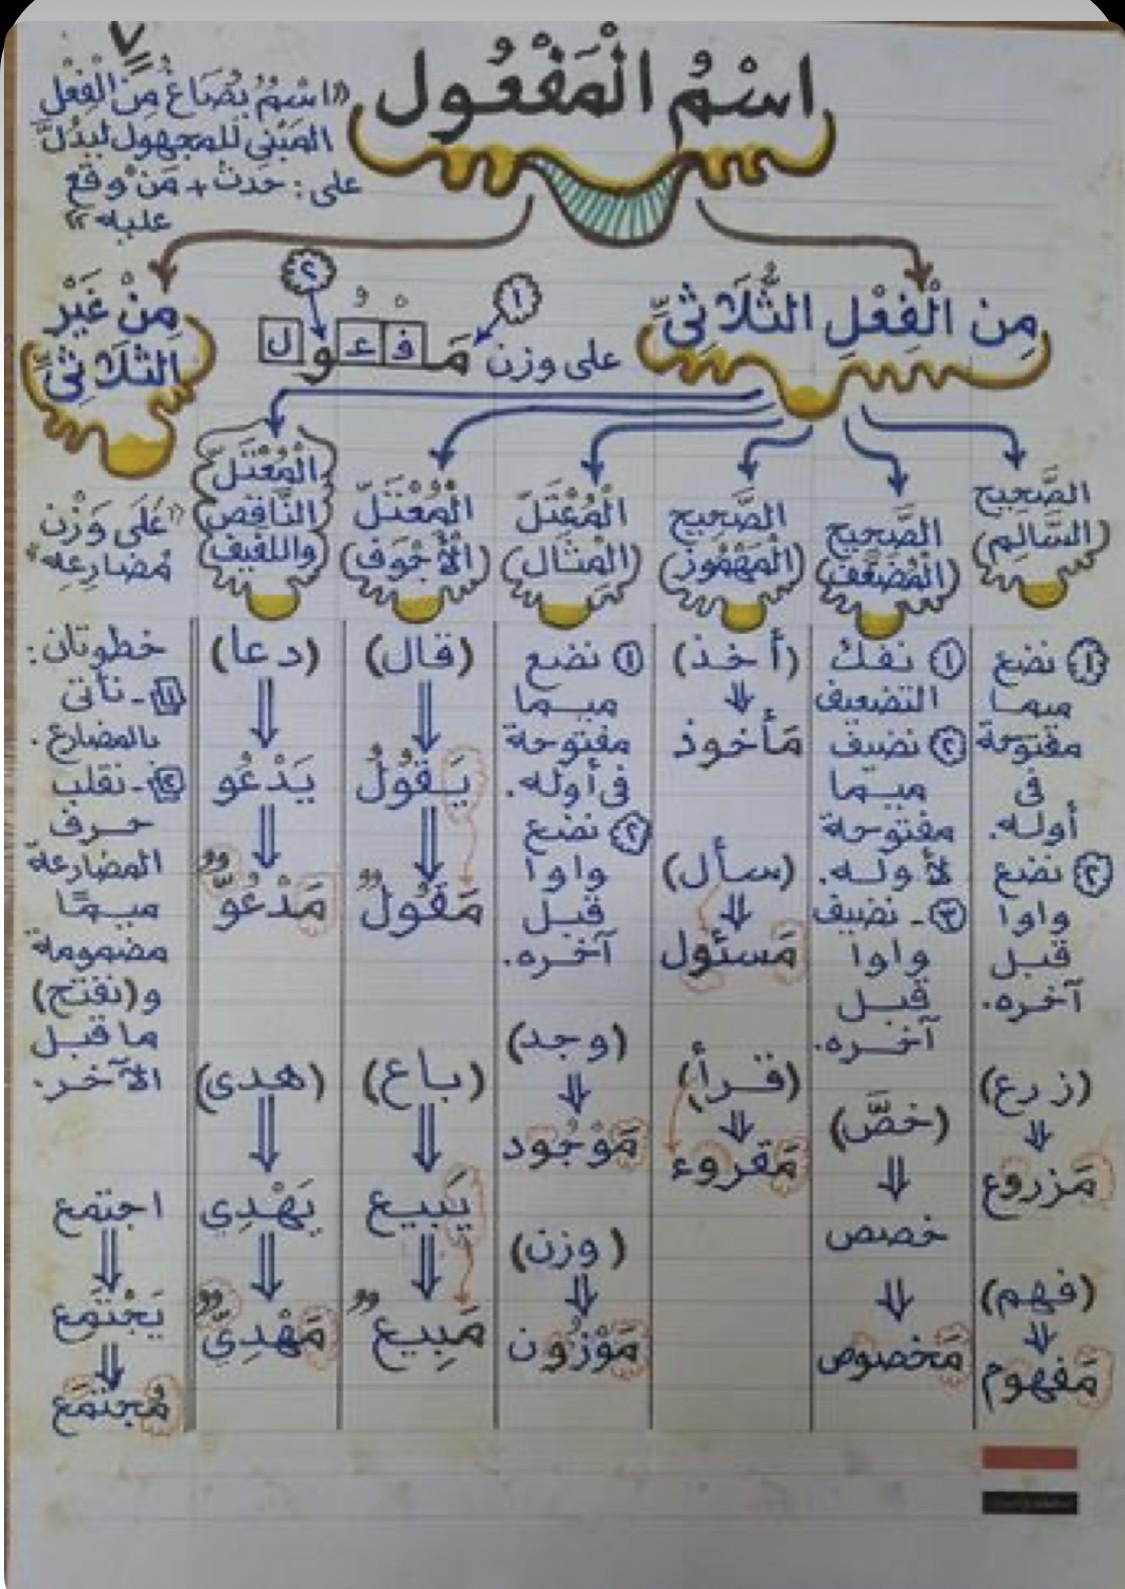 اسْمُ الْمَفْعُول
«اسْمٌ يُصَاغُ مِنَ الْفِعْلِ
المَبْنِي للمجهول ليدُلَّ
على: حَدَث + مَنْ وقع
عليه»
مِن الْفِعْلِ الثُّلَاثِيِّ
على وزن مَفْعُول
١
٢
مِنْ غَيْرِ
الثُّلَاثِيِّ
الصَّحِيح
(السَّالِم)
١ نضع
ميما
مفتوحة
فى
أوله.
٢ نضع
واوا
قبل
آخره.
(زرع)
مَزروع
(فهم)
مَفهوم
الصَّحِيح
(المُضَعَّف)
١ نفك
التضعيف
٢ نضيف
ميما
مفتوحة
لأوله.
٣- نضيف
واوا
قبل
آخره.
(خصَّ)
خصص
مَخصوص
الصَّحِيح
(المَهْمُوز)
(أخذ)
مَأخوذ
(سأل)
مَسئول
(قرأ)
مَقروء
الْمُعْتَلّ
(المِثَال)
١ نضع
ميما
مفتوحة
فى أوله.
٢ نضع
واوا
قبل
آخره.
(وجد)
مَوْجُود
(وزن)
مَوْزُون
الْمُعْتَلّ
(الأَجْوَف)
(قال)
يَقُولُ
مَقُول
(باع)
يَبيع
مَبِيع
الْمُعْتَلّ
النَّاقِص
واللفيف
(دعا)
يَدْعُو
مَدْعُوّ
(هدى)
يَهْدِي
مَهْدِيّ
«عَلَى وَزْن
مُضَارِعِه»
خطوتان:
١- نأتى
بالمضارع.
٢- نقلب
حرف
المضارعة
ميمًا
مضمومة
و(نفتح)
ما قبل
الآخر.
اجتمع
يَجْتَمع
مُجتمَع